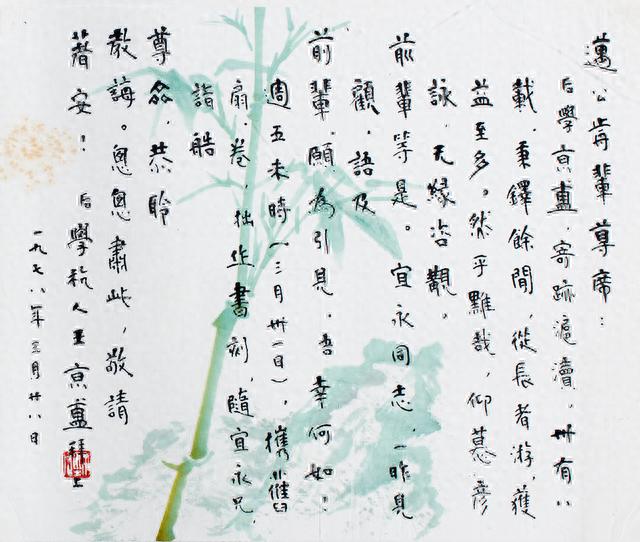 邁公歬輩尊席：
后學京盙，寄跡滬瀆，卅有八
載，秉鐸餘閒，從長者游，獲
益至多。然乎難哉，仰慕彥
詠，无緣咨觀。
前輩等是。宜永同志，一昨見
顧，語及
前輩，願為引見，吾幸何如！
週五未時（三月卅一日），攜
扇、卷，拙作書刻，隨宜永兄，
詣艁
尊　，恭聆
教誨。恖恖肅此，敬請
著安！后學杭人王京盙拜上
一九七八年三月廿八日